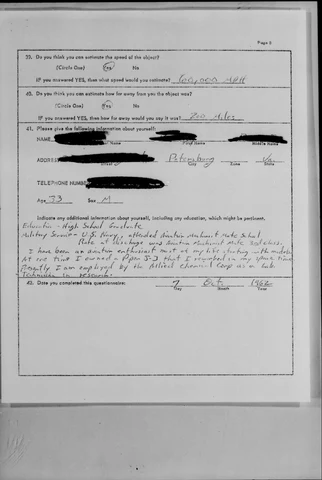 Page 5
39. Do you think you can estimate the speed of the object?
(Circle One) Yes No
IF you answered YES, then what speed would you estimate? 60,000 MPH
40. Do you think you can estimate how far away from you the object was?
(Circle One) Yes No
IF you answered YES, then how far away would you say it was? 200 Miles
41. Please give the following information about yourself:
NAME
Last Name First Name Middle Name
ADDRESS Petersburg Va.
Street City Zone State
TELEPHONE NUMBER
Age 33 Sex M
Indicate any additional information about yourself, including any education, which might be pertinent.
Education - High School Graduate
Military Service - U.S. Navy, attended Aviation Machinist Mate School
Rate at discharge was Aviation Machinist Mate
I have been an aviation enthusiast most of my life starting with models.
At one time I owned a Piper J-3 that I in my spare time
Presently I am employed by the Allied Chemical Corp as a Lab
Technician in research.
42. Date you completed this questionnaire: 7 Oct 1962
Day Month Year